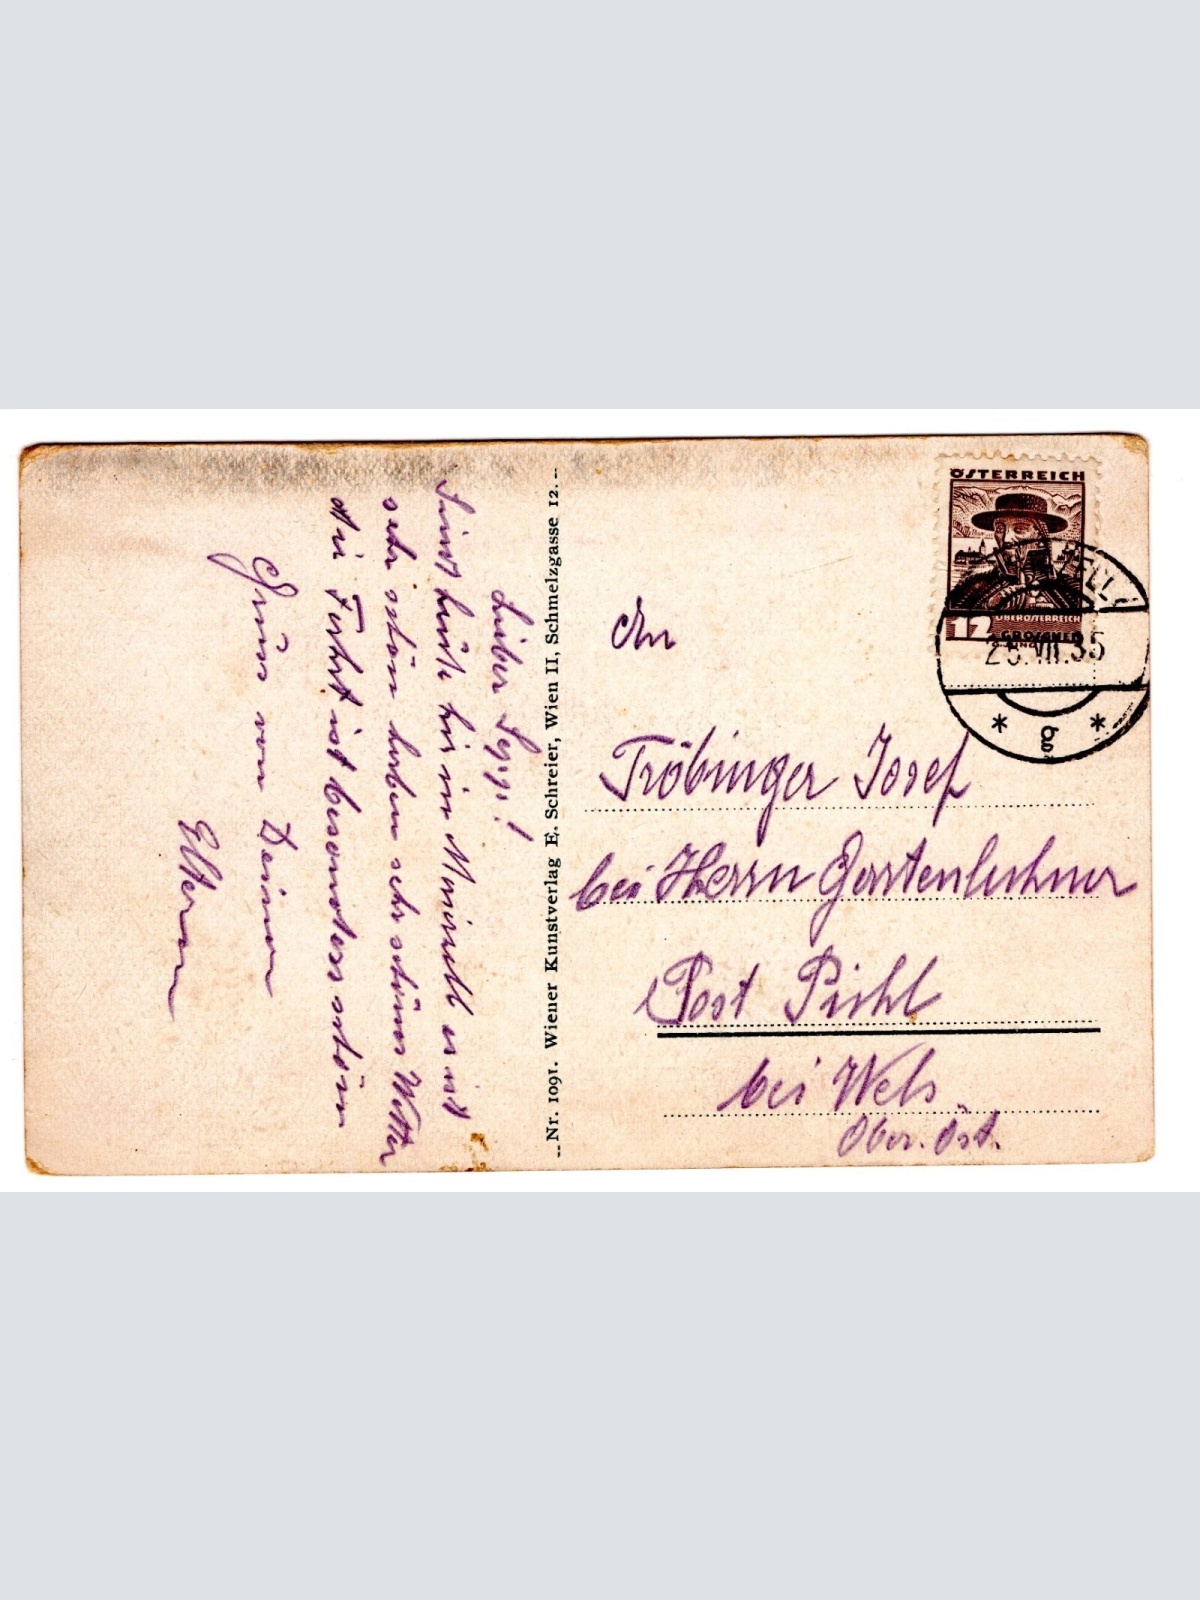 Lieber Seppi!
Sind heute hir in Mariazell es ist
sehr schön haben sehr schönes Wetter
die Fahrt ist besonders schön
Gruss von Deinen
Eltern
Nr. 1091. Wiener Kunstverlag E. Schreier, Wien II, Schmelzgasse 12.
ÖSTERREICH
12 GROSCHEN
OBERÖSTERREICH
ZELL
25.VII.35
* g *
An
Tröbinger Josef
bei Herrn Gartenlehner
Post Pichl
bei Wels
Ober. Öst.